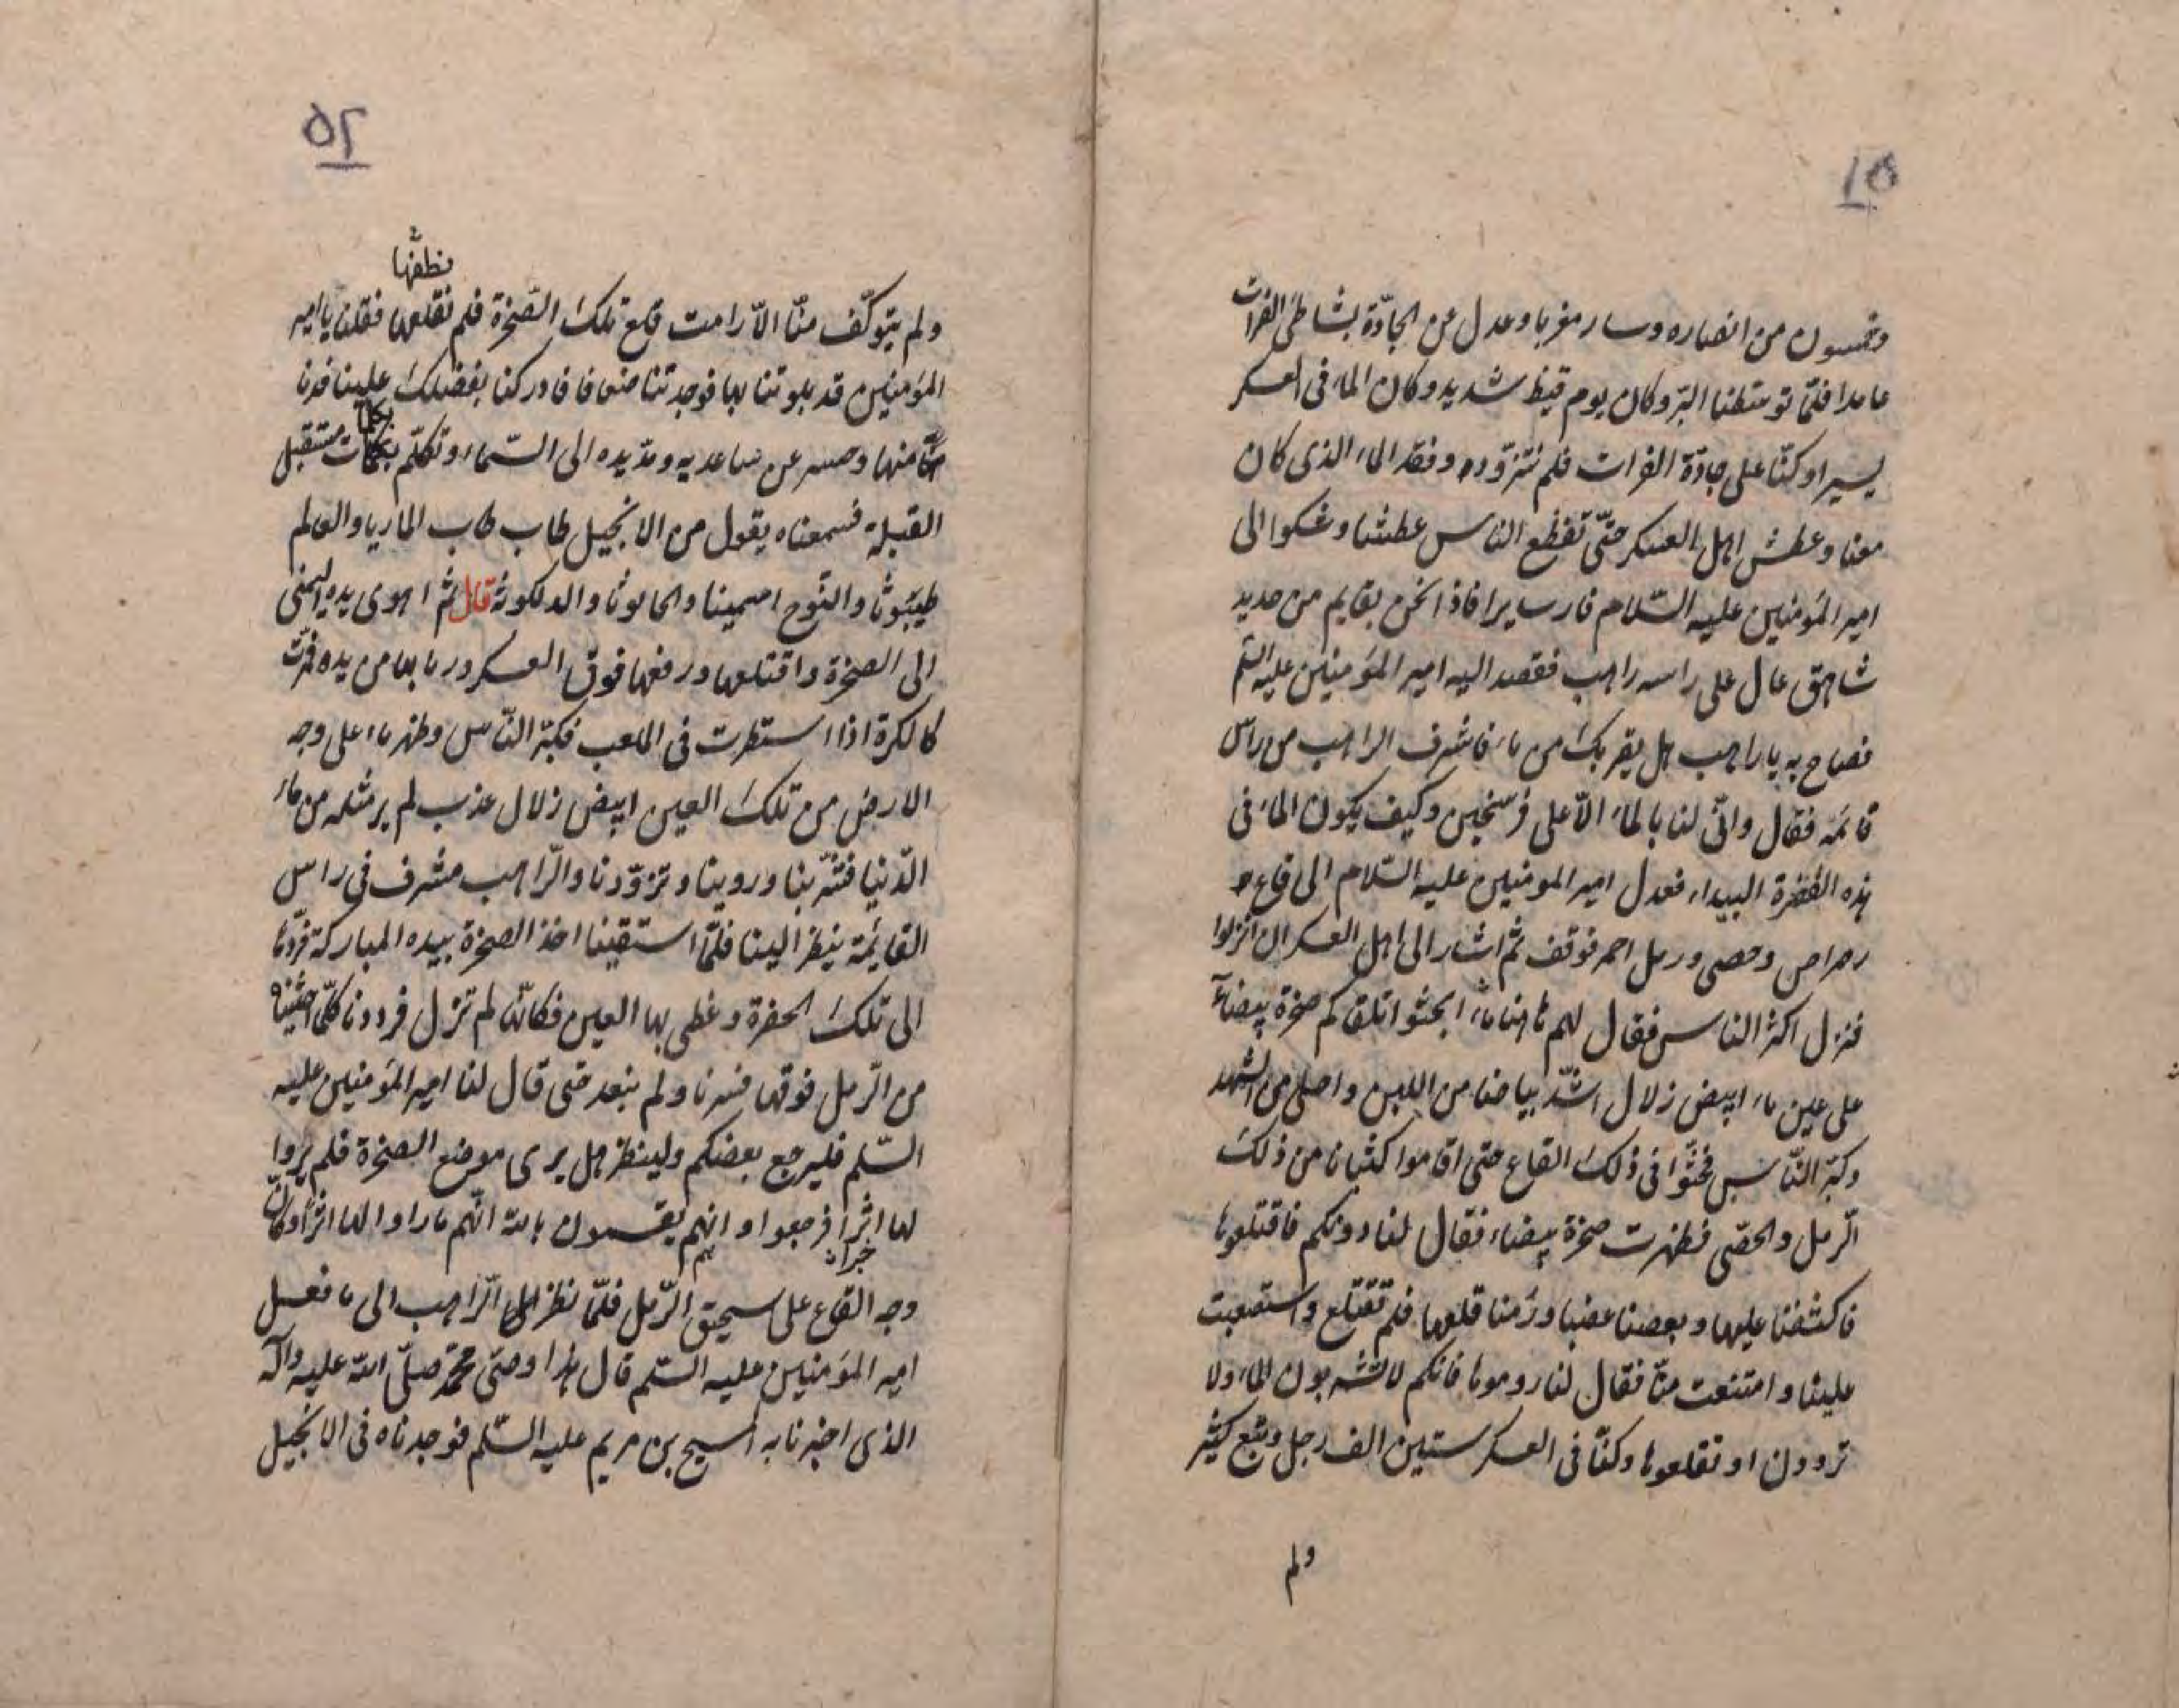 ٥١
وخمسون من انصاره وسار مغربا وعدل عن الجادّة بشاطئ الفرات
عامدا فلمّا توسّطنا البرّ وكان يوم قيظ شديد وكان الماء فى العسكر
يسيرا وكنّا على جادّة الفرات فلم نتزوّد وفقد الماء الذى كان
معنا وعطش اهل العسكر حتّى تفظع الناس عطشا وشكوا الى
امير المؤمنين عليه السّلام فارسايرا فاذا نحن بقايم من حديد
شاهق عال على راسه راهب فقصد اليه امير المؤمنين عليه السّلم
فصاح به يا راهب هل يقربك من ماء فاشرف الراهب من راس
قائمه فقال وانّى لنا بالماء الّا على فرسخين وكيف يكون الماء فى
هذه القفرة البيداء فعدل امير المومنين عليه السّلام الى قاع
رضراض وحصى ورمل احمر فوقف ثم اشار الى اهل العسكر ان انزلوا
فنزل اكثر الناس فقال لهم هاهنا ماء ابحثوا تلقاكم صخرة بيضاء
على عين ماء ابيض زلال اشدّ بياضا من اللبن واحلى من الشهد
وكبّر النّاس فحثّوا فى ذلك القاع حتى اقاموا كثبانا من ذلك
الرّمل والحصى فظهرت صخرة بيضاء فقال لنا دونكم فاقتلعوها
فاكشفنا عليها وبعضنا عضبا ورمنا قلعها فلم تقتلع واستصعبت
علينا وامتنعت منّا فقال لنا روموها فانكم لا تشربون الماء ولا
تروون او تقلعوها وكنّا فى العسكر ستين الف رجل وتبع كثير
ولم
٥٢
نطقها
ولم يتوكّف منّا الّا رامت قلع تلك الصّخرة فلم نقلعها فقلنا يا امير
المؤمنين قد بلوتنا بها فوجدتنا ضعافا فادركنا بفضلك علينا فدنا
منها وحسر عن ساعديه ومدّ يده الى السّماء وتكلّم بكلمات مستقبل
القبلة فسمعناه يقول من الانجيل طاب طاب الماريا والعالم
طيبوثا والنوح اسمينا والحالوثا والدلكوثة قال ثم اهوى بيده اليمنى
الى الصخرة واقتلعها ورفعها فوق العسكر ورما بها من يده فمرّت
كالكرة اذا استطرت فى الملعب فكبّر النّاس وظهر ماء على وجه
الارض من تلك العين ابيض زلال عذب لم ير مثله من ماء
الدّنيا فشربنا وروينا وتزوّدنا والرّاهب مشرف فى راس
القايمة ينظر الينا فلمّا استقينا اخذ الصخرة بيده المباركة فردّها
الى تلك الحفرة وغطى بها العين فكانّه لم تزل فرددنا كلّما حثيناه
من الرّمل فوقها فسرنا ولم نبعد حتى قال لنا امير المؤمنين عليه
السّلم فليرجع بعضكم ولينظر هل يرى موضع الصخرة فلم يروا
لها اثرا فرجعوا وانهم يقسمون بالله انّهم ما راوا لها اثرا وكانّ
وجه القاع على سحيق الرّمل فلمّا نظر الرّاهب الى ما فعل
امير المؤمنين عليه السّلم قال هذا وصىّ محمّد صلّى الله عليه وآله
الذى اخبرنا به المسيح بن مريم عليه السّلم فوجدناه فى الانجيل